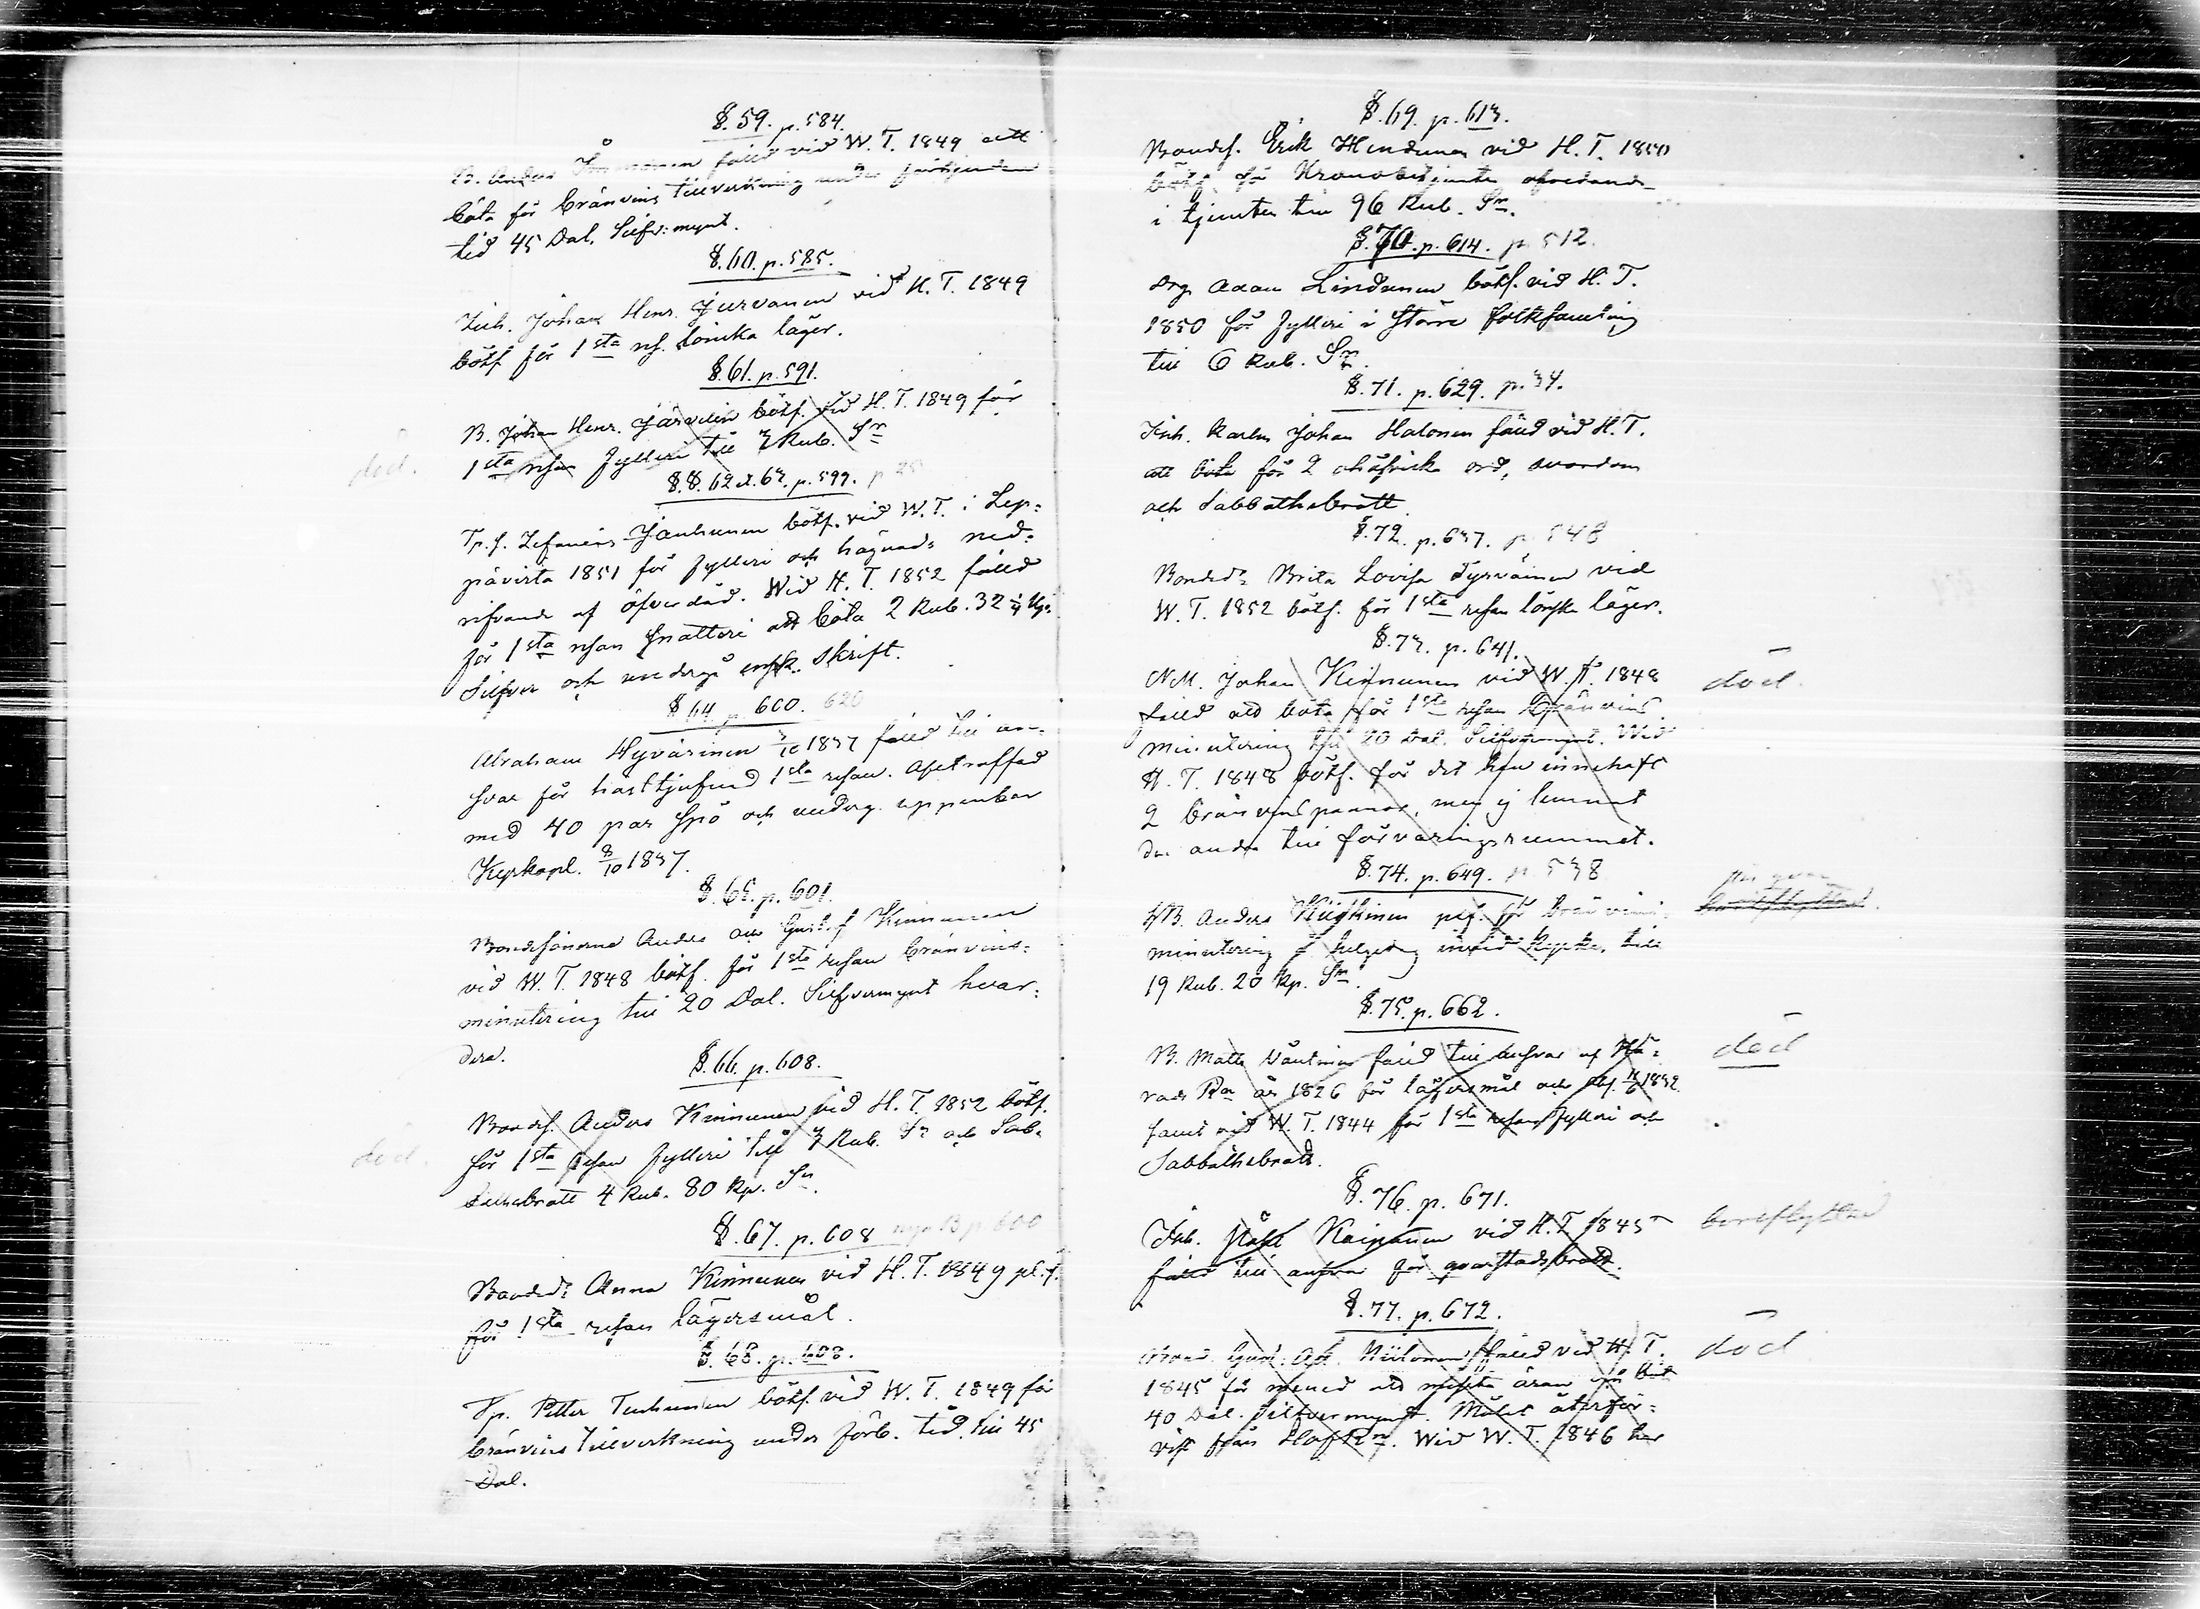 §. 59. p. 584.
B. Anders fälld vid W. T. 1849 att
böta för bränvins tillverkning under förbjuden
tid 45 Dal. Silfv: mynt.
§. 60. p. 585.
Inh. Johan Henr. Jurvanen vid H. T. 1849
bötf. för 1sta rs. lönska läger.
§. 61. p. 591.
B. Johan Henr. Järvelin bötf. vid H. T. 1849 för
1sta resan fylleri till 3 Rub. Sr
död.
§.§. 62 et. 63. p. 599.
Tp. s. Zefanias Janhunen bötf. vid W. T. i Lep=
pävirta 1851 för fylleri och hägnads ned=
rifvande af öfverdåd. Wid H. T. 1852 fälld
för 1sta resan snatteri att böta 2 Rub. 32 1/4 Kp.
Silfver och undergå ensk. skrift.
§ 64 p. 600. 620
Abraham Hyvärinen 3/10 1837 fälld till an=
svar för hästtjufnad 1sta resan. Afstraffad
med 40 par spö och underg. uppenbar
Kyrkopl. 8/10 1837.
§. 65. p. 601.
Bondesönerne Anders och Gustaf Kinnunen
vid W. T. 1848 bötf. för 1sta resan bränvins=
minutering till 20 Dal. Silfvermynt hvar=
dera.
§. 66. p. 608.
Bondes. Anders Kinnunen vid H. T. 1852 bötf.
för 1sta resan fylleri till 3 Rub. Sr och Sab=
bathsbrott 4 Rub. 80 Kp. Sr.
död.
§. 67. p. 608 nya B p. 600
Bonded: Anna Kinnunen vid H. T. 1849 pl. f.
för 1sta resan lägersmål.
§. 68. p. 608.
Tp. Petter Tenhunen bötf. vid W. T. 1849 för
bränvins tillverkning under förb. tid till 45
Dal.
§. 69. p. 613.
Bondes. Erik Hendunen vid H. T. 1850
bötf. för Kronobetjents ofredande
i tjensten till 96 Rub. Sr.
§. 70. p. 614. p. 512.
Drg Adam Lindunen bötf. vid H. T.
1850 för fylleri i större folksamling
till 6 Rub. Sr.
§. 71. p. 629. p. 34.
Inh. Karlen Johan Halonen fälld vid H. T.
att böta för 2 ohöfviska ord, svordom
och Sabbathsbrott.
§. 72. p. 637. p. 548
Bonded: Brita Lovisa Tyrväinen vid
W. T. 1852 bötf. för 1sta resan lönska läger.
§. 73. p. 641.
NM. Johan Kinnunen vid W. T. 1848
fälld att böta för 1sta resan bränvins
minutering till 20 Dal. Silfvermynt. Wid
H. T. 1848 bötf. för det han innehaft
2 bränvinspannor, men ej lemnat
den andra till förvaringsrummet.
död.
§. 74. p. 649. p. 538
Anders Kiiskinen plf. för bränvins
minutering å helgedag invid kyrka, till
19 Rub. 20 Kp. Sr.
bortflyttad.
§. 75. p. 662.
B. Matts Väntinen fälld till ansvar af Hä=
rads Rn år 1826 för lägersmål och
samt vid W. T. 1844 för 1sta resan fylleri och
Sabbathsbrott.
död
§. 76. p. 671.
Inh. Kaipainen vid H. T. 1845
fälld till ansvar för qvarstadsbrott.
bortflyttad
§. 77. p. 672.
Gust. Ad. Niilonen fälld vid H. T.
1845 för mened att mista äran och böta
40 Dal. Silfvermynt. Målet återför=
vist från HofRn. Wid W. T. 1846 har
död